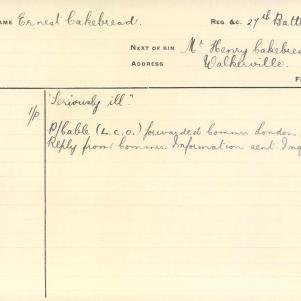 NAME Ernest Cakebread. REG. &C. 27th Batt
NEXT OF KIN Mr Henry Cakebread
ADDRESS Walkerville.
"Seriously ill."
P/Cable (L.C.O.) forwarded Commr. London.
Reply from Commr. Information sent Inq